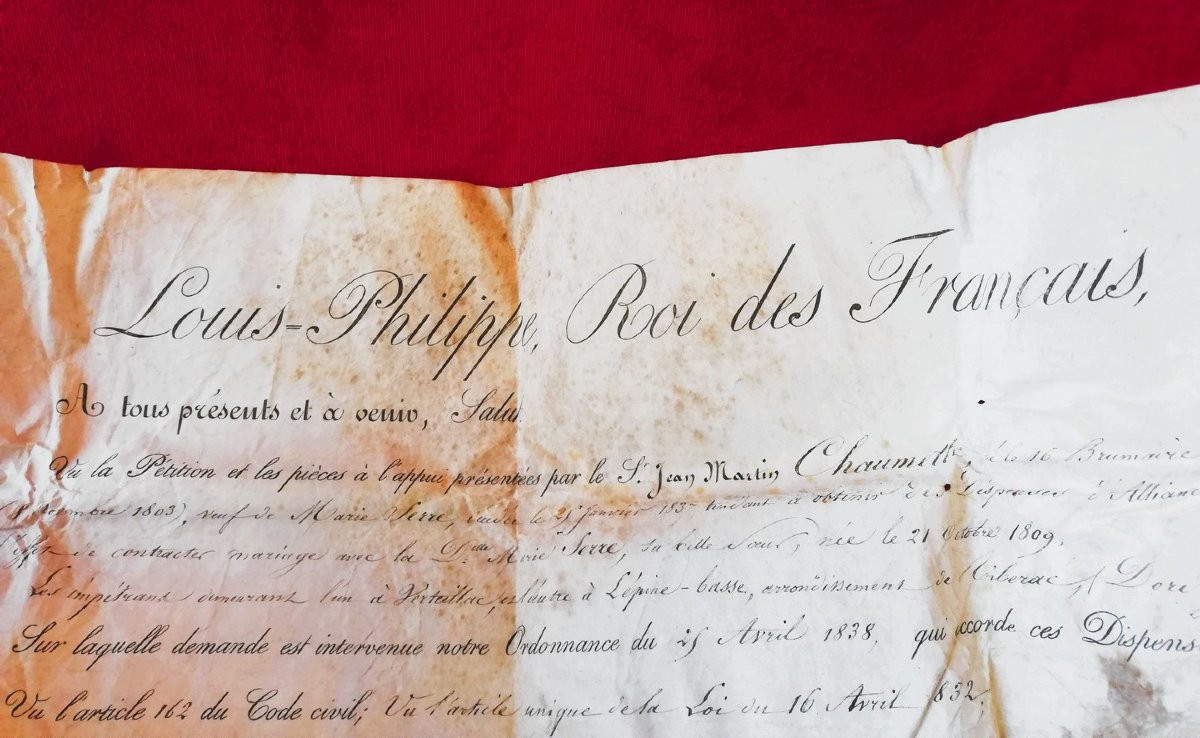 Louis-Philippe, Roi des Français,
A tous présents et à venir, Salut.
Vu la Pétition et les pièces à l'appui présentées par le Sr. Jean Martin Chaumette, né le 16 Brumaire
(8 Novembre 1803), veuf de Marie Serre, décédée le Janvier tendant à obtenir des Dispenses d'Allian
de contracter mariage avec la Dlle. Marie Serre, sa belle Sœur, née le 21 Octobre 1809,
Les impétrans demeurant l'un à Verteillac, et l'autre à L'épine-basse, arrondissement de Riberac, (Dor
Sur laquelle demande est intervenue notre Ordonnance du 25 Avril 1838, qui accorde ces Dispens
Vu l'article 162 du Code civil; Vu l'article unique de la Loi du 16 Avril 832;